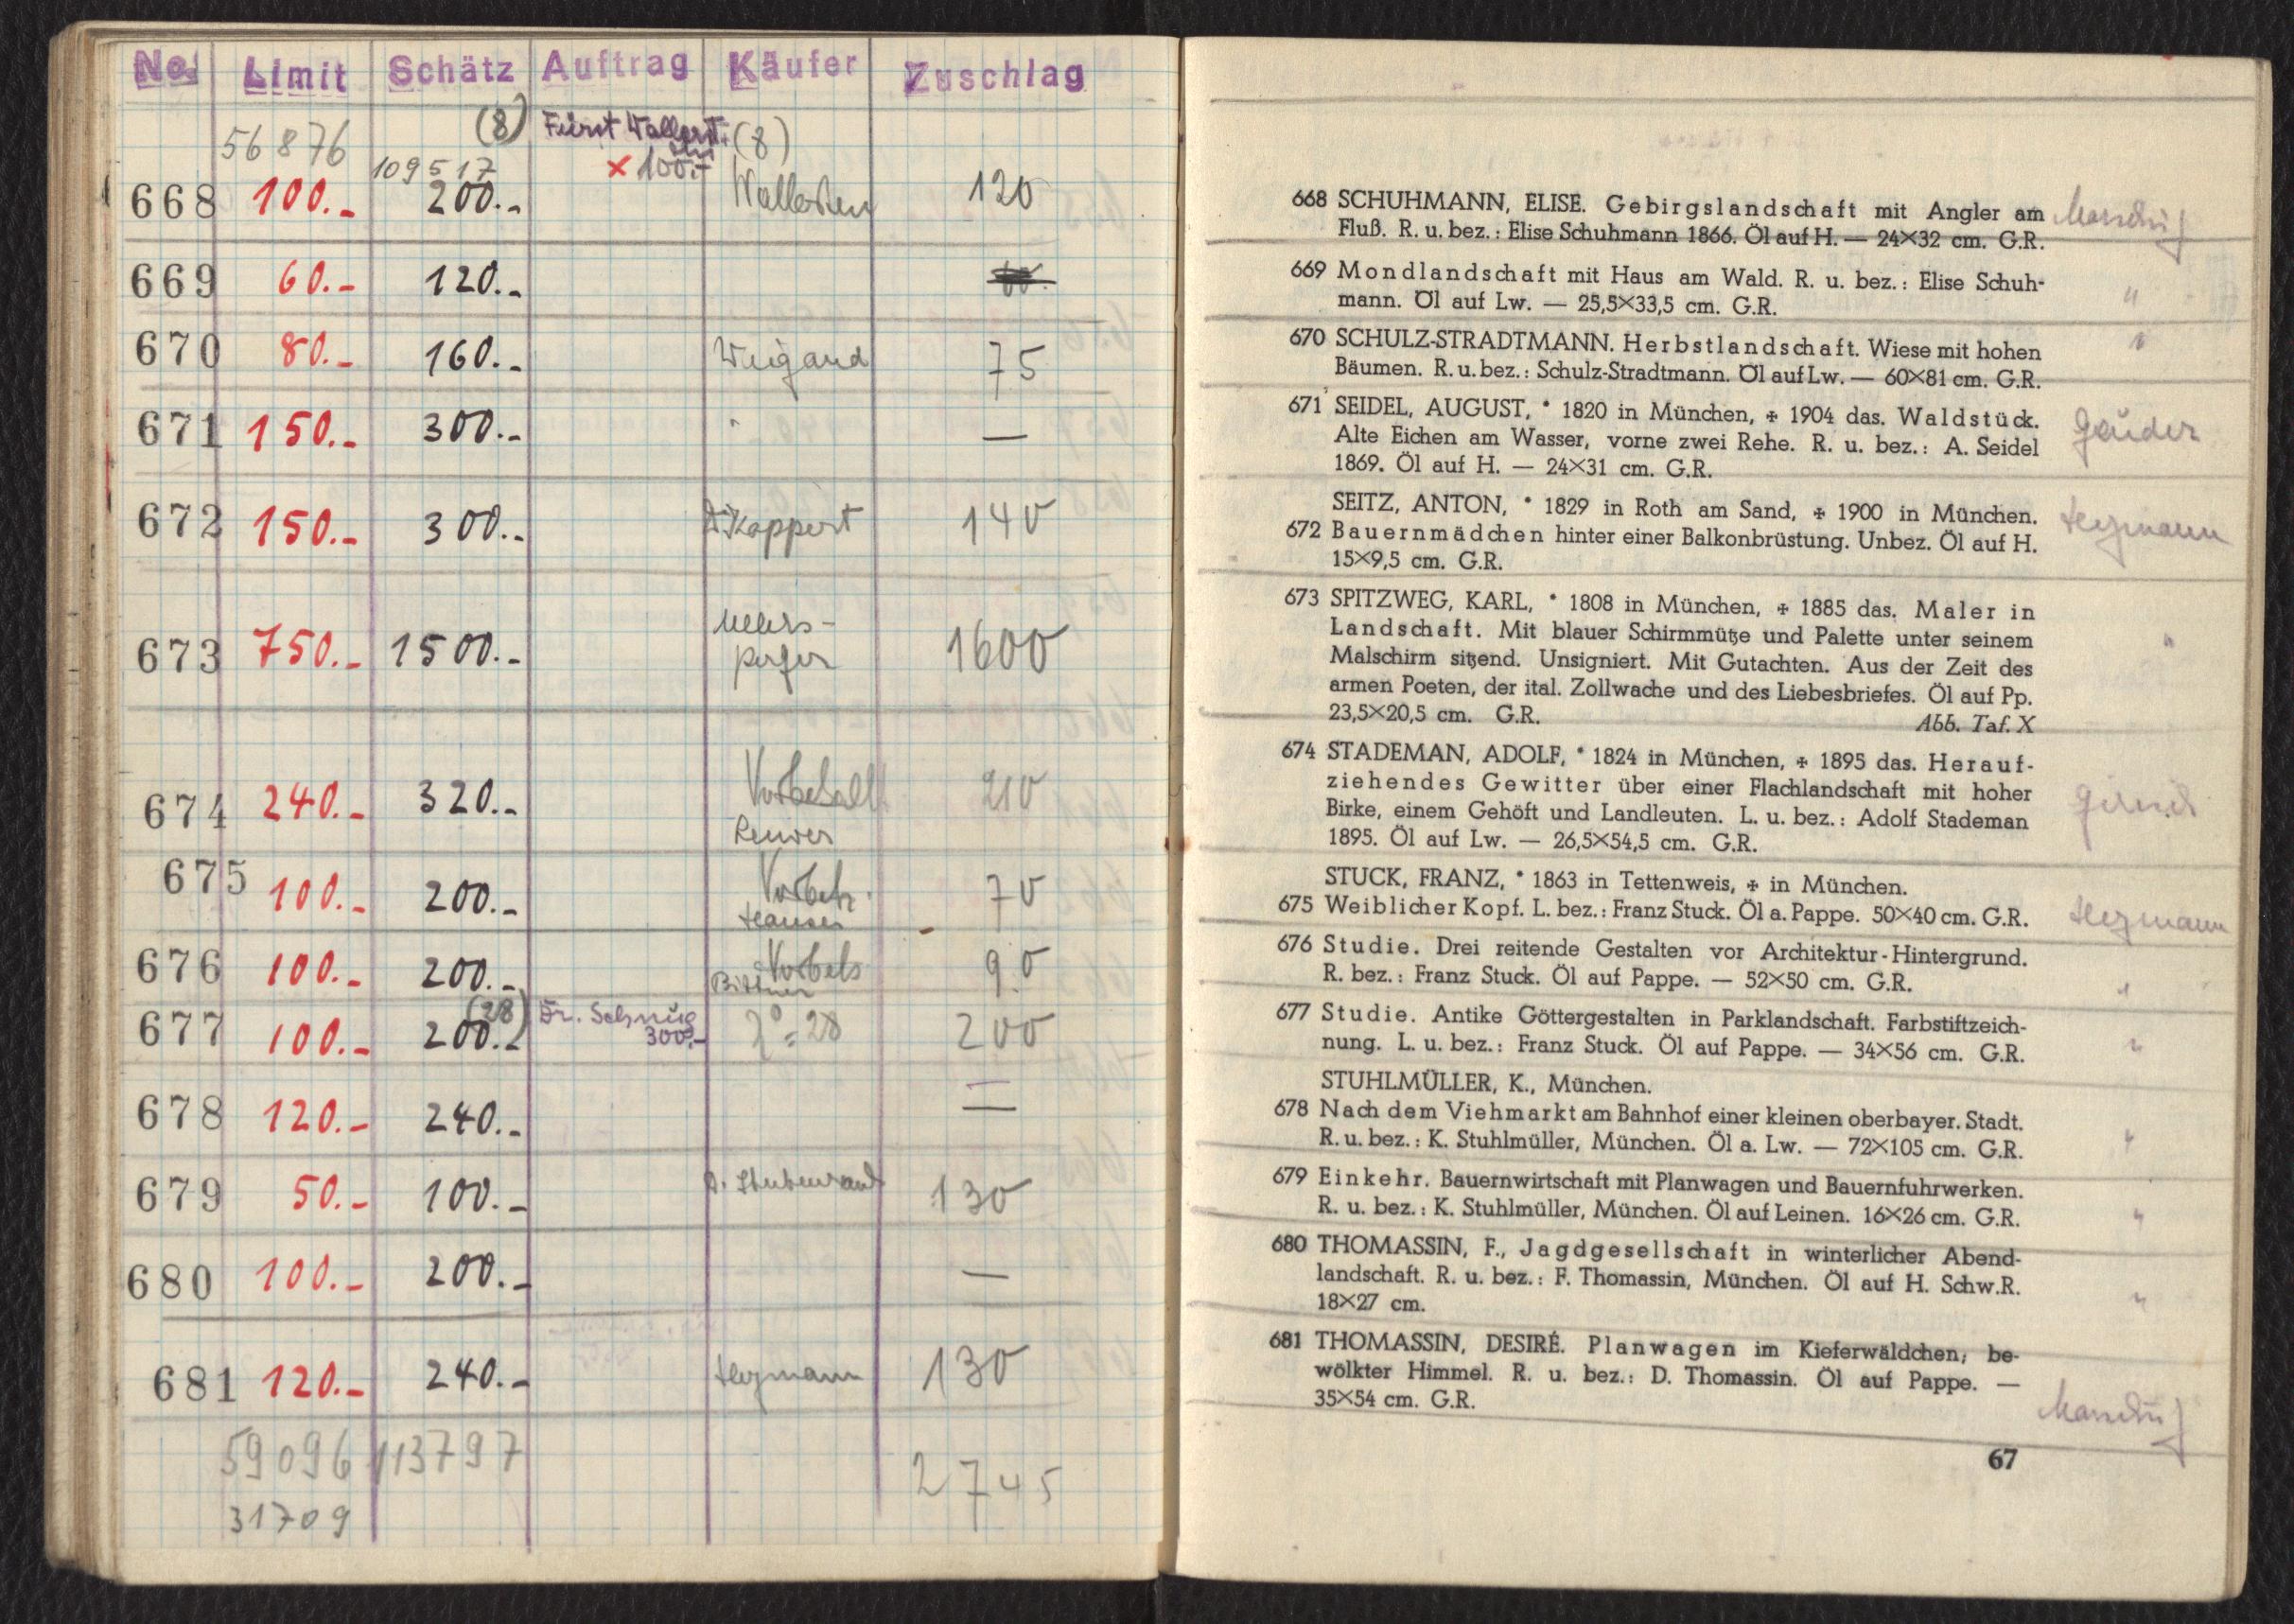 No. Limit Schätz Auftrag Käufer Zuschlag
56876 109517 (8) Fürst Wallerst. (8)
× 100.-
668 100.- 200.- Wallerstein 120
669 60.- 120.-
670 80.- 160.- Weigand 75
671 150.- 300.- —
672 150.- 300.- Kappert 140
673 750.- 1500.- 1600
674 240.- 320.- Vorbehalt 210
675 100.- 200.- Vorbeh. 70
Hauser
676 100.- 200.- Vorbeh. 90
Bittner
677 100.- 200.- (28) Dr. Schnüg 300.- 28 200
678 120.- 240.- —
679 50.- 100.- 130
680 100.- 200.- —
681 120.- 240.- Hegmann 130
59096 113797 2745
31709
668 SCHUHMANN, ELISE. Gebirgslandschaft mit Angler am
Fluß. R. u. bez.: Elise Schuhmann 1866. Öl auf H. — 24×32 cm. G.R.
669 Mondlandschaft mit Haus am Wald. R. u. bez.: Elise Schuh-
mann. Öl auf Lw. — 25,5×33,5 cm. G.R. "
670 SCHULZ-STRADTMANN. Herbstlandschaft. Wiese mit hohen "
Bäumen. R. u. bez.: Schulz-Stradtmann. Öl auf Lw. — 60×81 cm. G.R.
671 SEIDEL, AUGUST, * 1820 in München, ✠ 1904 das. Waldstück.
Alte Eichen am Wasser, vorne zwei Rehe. R. u. bez.: A. Seidel
1869. Öl auf H. — 24×31 cm. G.R.
SEITZ, ANTON, * 1829 in Roth am Sand, ✠ 1900 in München. Hegmann
672 Bauernmädchen hinter einer Balkonbrüstung. Unbez. Öl auf H.
15×9,5 cm. G.R.
673 SPITZWEG, KARL, * 1808 in München, ✠ 1885 das. Maler in
Landschaft. Mit blauer Schirmmütze und Palette unter seinem "
Malschirm sitzend. Unsigniert. Mit Gutachten. Aus der Zeit des
armen Poeten, der ital. Zollwache und des Liebesbriefes. Öl auf Pp.
23,5×20,5 cm. G.R. Abb. Taf. X
674 STADEMAN, ADOLF, * 1824 in München, ✠ 1895 das. Herauf-
ziehendes Gewitter über einer Flachlandschaft mit hoher
Birke, einem Gehöft und Landleuten. L. u. bez.: Adolf Stademan
1895. Öl auf Lw. — 26,5×54,5 cm. G.R.
STUCK, FRANZ, * 1863 in Tettenweis, ✠ in München.
675 Weiblicher Kopf. L. bez.: Franz Stuck. Öl a. Pappe. 50×40 cm. G.R. Hegmann
676 Studie. Drei reitende Gestalten vor Architektur-Hintergrund.
R. bez.: Franz Stuck. Öl auf Pappe. — 52×50 cm. G.R. "
677 Studie. Antike Göttergestalten in Parklandschaft. Farbstiftzeich-
nung. L. u. bez.: Franz Stuck. Öl auf Pappe. — 34×56 cm. G.R. "
STUHLMÜLLER, K., München.
678 Nach dem Viehmarkt am Bahnhof einer kleinen oberbayer. Stadt.
R. u. bez.: K. Stuhlmüller, München. Öl a. Lw. — 72×105 cm. G.R. "
679 Einkehr. Bauernwirtschaft mit Planwagen und Bauernfuhrwerken.
R. u. bez.: K. Stuhlmüller, München. Öl auf Leinen. 16×26 cm. G.R. "
680 THOMASSIN, F., Jagdgesellschaft in winterlicher Abend-
landschaft. R. u. bez.: F. Thomassin, München. Öl auf H. Schw.R.
18×27 cm. "
681 THOMASSIN, DESIRÉ. Planwagen im Kieferwäldchen, be-
wölkter Himmel. R. u. bez.: D. Thomassin. Öl auf Pappe. —
35×54 cm. G.R.
67